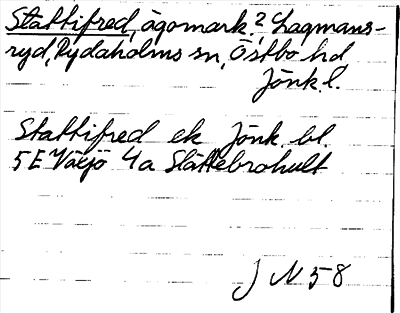 Stattifred, ägomark?, Lagmans-
ryd, Rydaholms sn, Östbo hd
Jönk. l.
Stattifred ek Jönk. bl.
5 E Växjö 4a Slättebrohult
J N 58